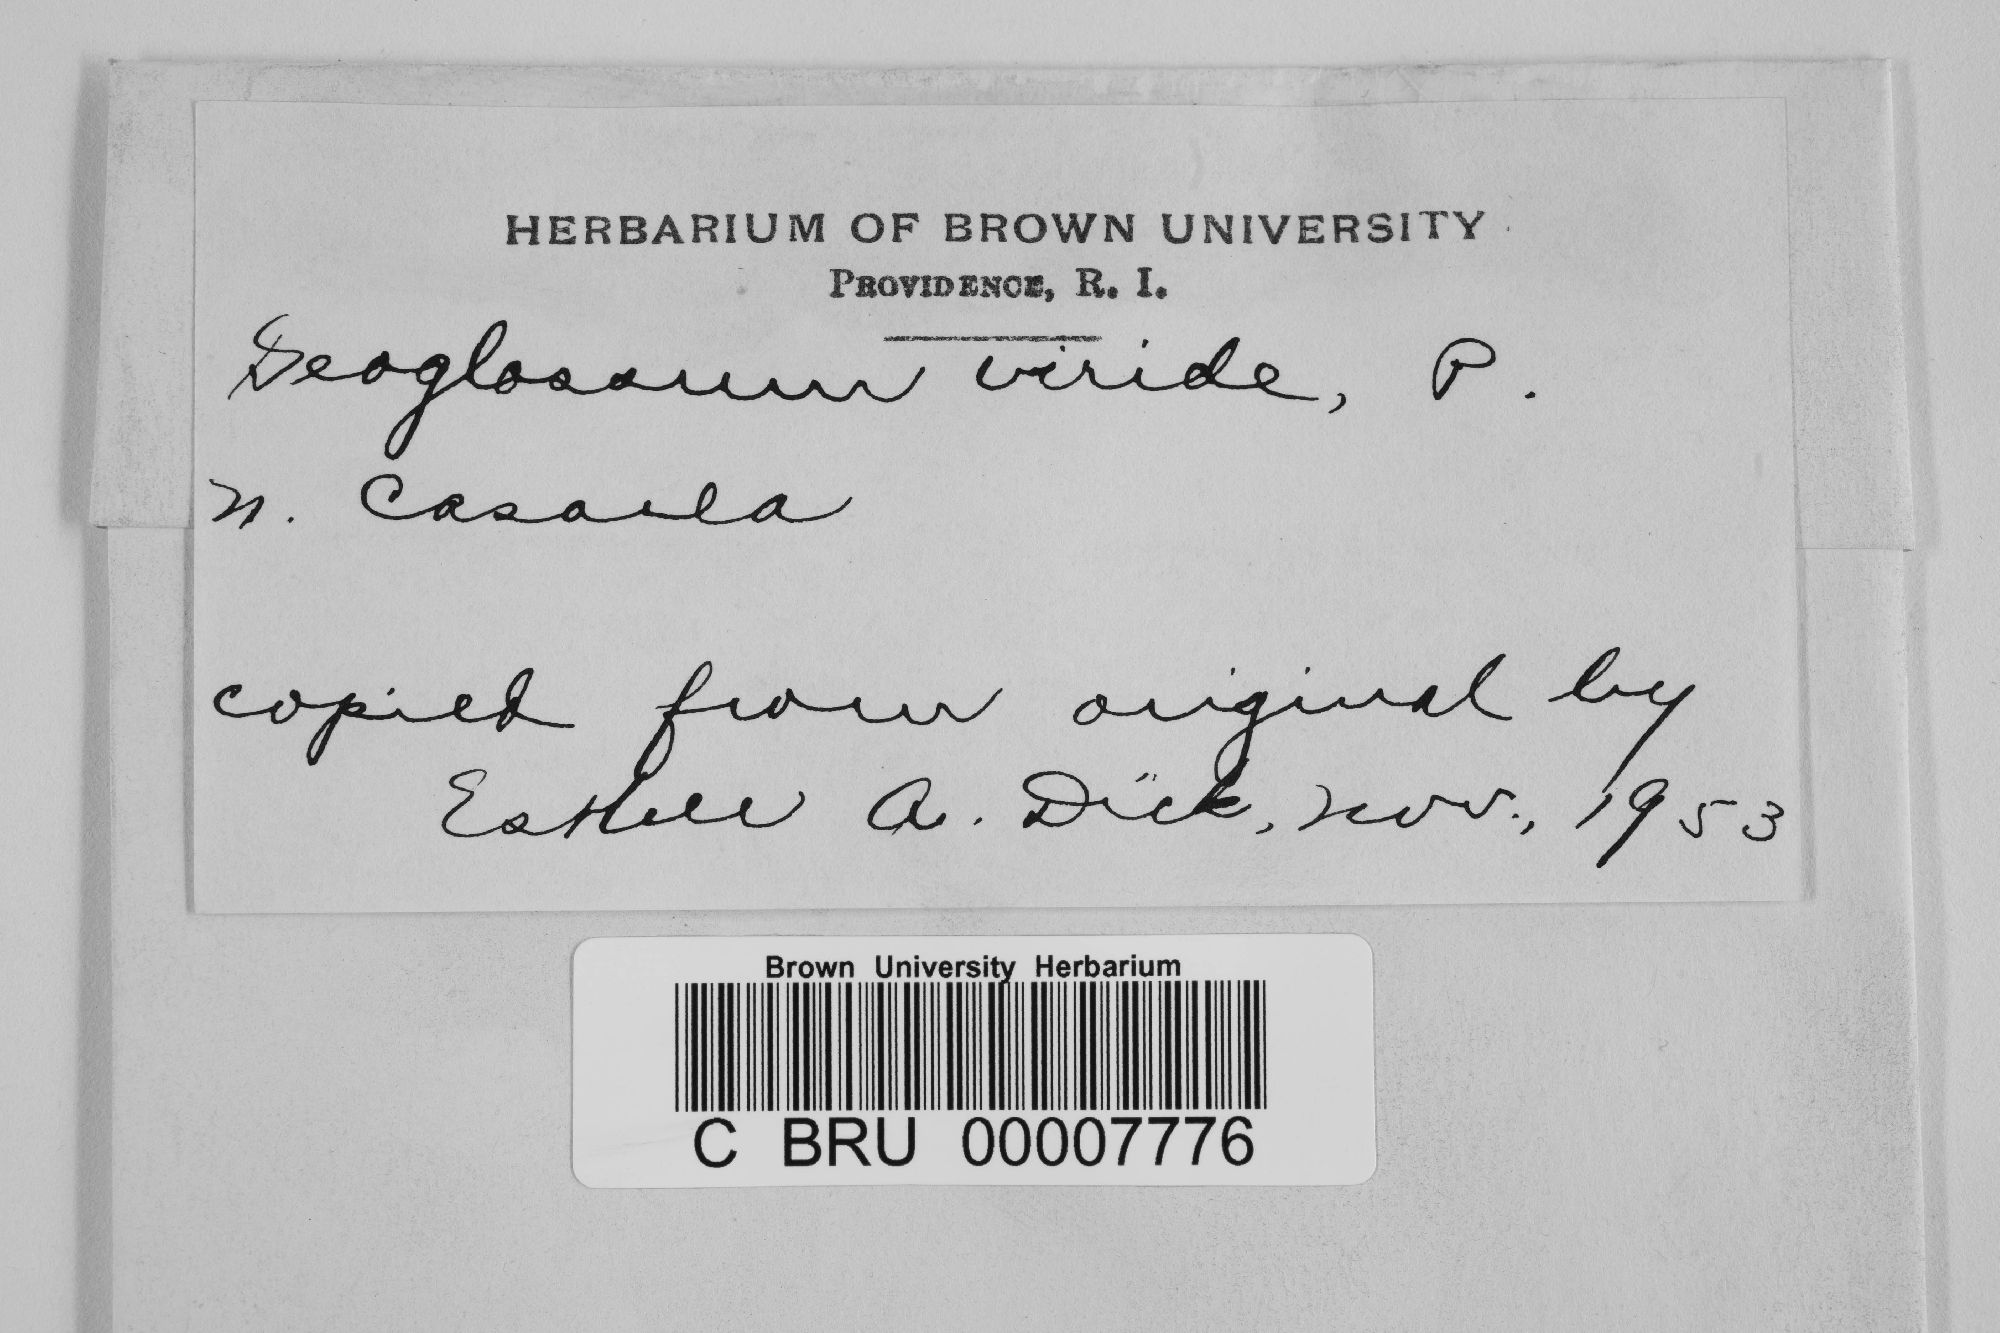 HERBARIUM OF BROWN UNIVERSITY
PROVIDENCE, R. I.
Geoglossum viride, P.
N. Casaela
copied from original by
Esther A. Dick, Nov., 1953
Brown University Herbarium
C BRU 00007776